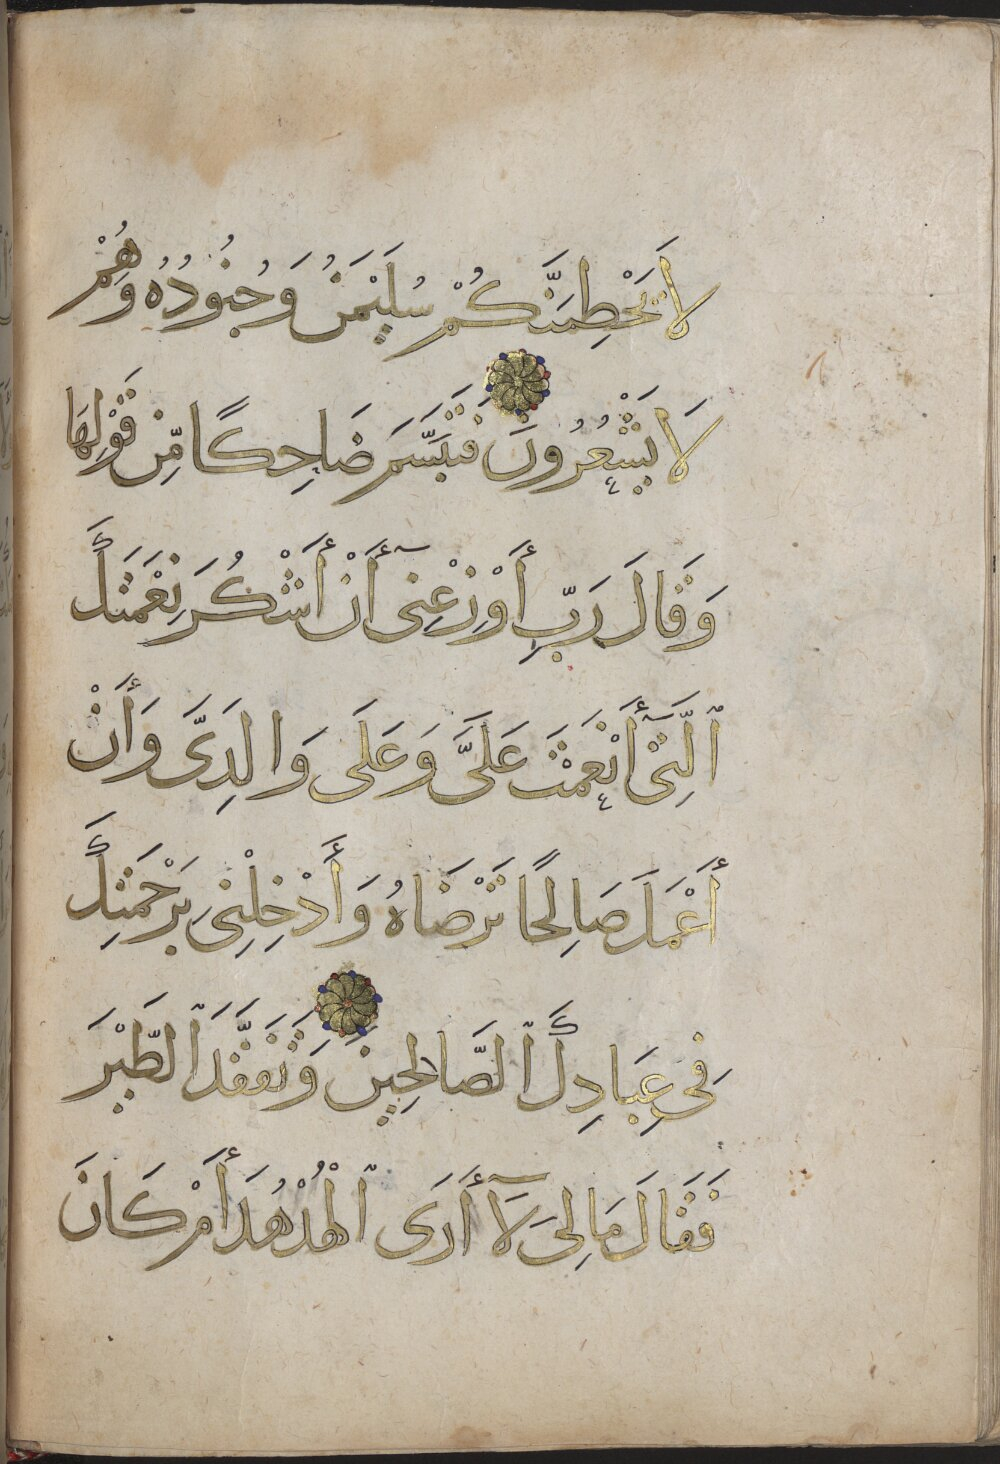 لَا يَحْطِمَنَّكُمْ سُلَيْمَنُ وَجُنُودُهُ وَهُمْ
لَا يَشْعُرُونَ فَتَبَسَّمَ ضَاحِكًا مِّن قَوْلِهَا
وَقَالَ رَبِّ أَوْزِعْنِىٓ أَنْ أَشْكُرَ نِعْمَتَكَ
ٱلَّتِىٓ أَنْعَمْتَ عَلَىَّ وَعَلَى وَالِدَىَّ وَأَنْ
أَعْمَلَ صَالِحًا تَرْضَاهُ وَأَدْخِلْنِى بِرَحْمَتِكَ
فِى عِبَادِكَ ٱلصَّالِحِينَ وَتَفَقَّدَ ٱلطَّيْرَ
فَقَالَ مَا لِىَ لَآ أَرَى ٱلْهُدْهُدَ أَمْ كَانَ